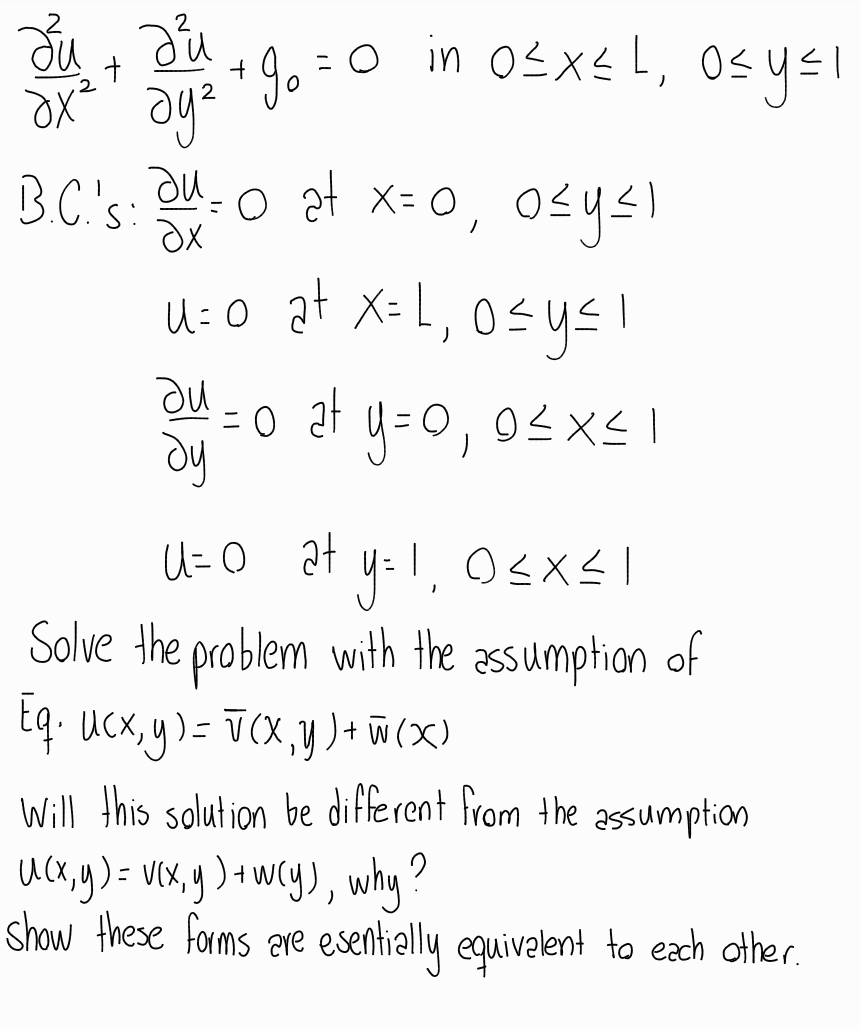 ∂²u/∂x² + ∂²u/∂y² + g₀ = 0 in 0 ≤ x ≤ L, 0 ≤ y ≤ 1
B.C.'s: ∂u/∂x = 0 at x = 0, 0 ≤ y ≤ 1
u = 0 at x = L, 0 ≤ y ≤ 1
∂u/∂y = 0 at y = 0, 0 ≤ x ≤ 1
u = 0 at y = 1, 0 ≤ x ≤ 1
Solve the problem with the assumption of
Eq. u(x,y) = v̄(x,y) + w̄(x)
Will this solution be different from the assumption
u(x,y) = v(x,y) + w(y), why?
Show these forms are esentially equivalent to each other.